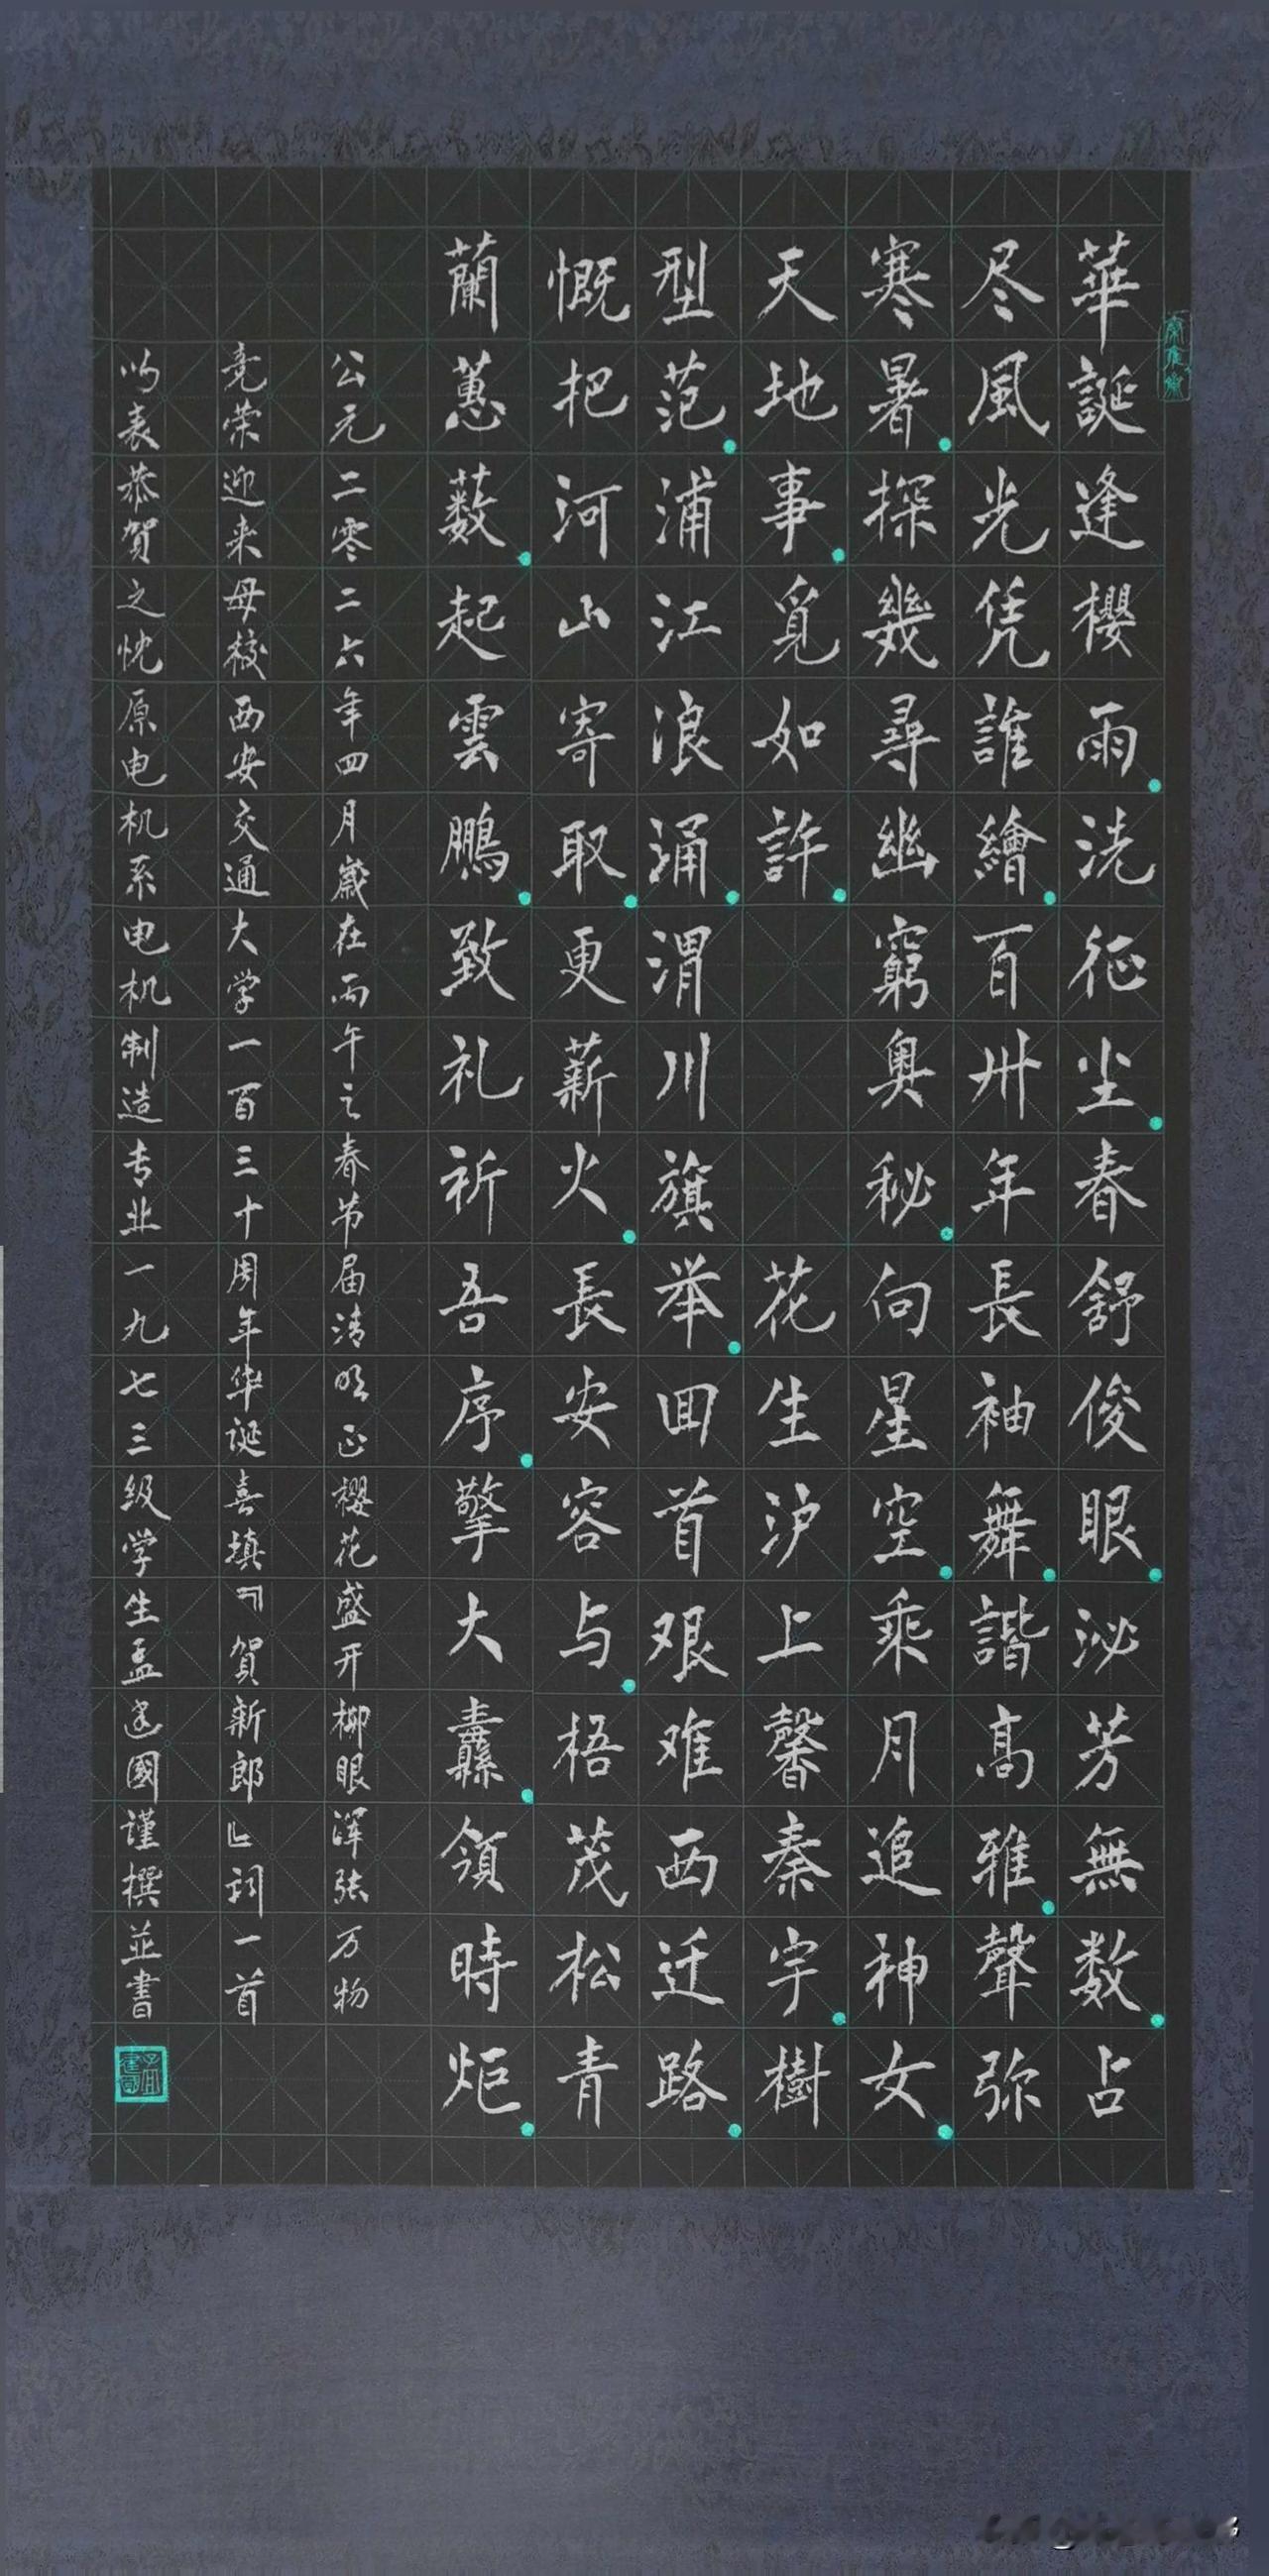 華誕逢櫻雨洗征尘春舒俊眼泌芳無数占
尽風光凭誰繪百卅年長袖舞諧高雅聲弥
寒暑探幾尋幽窮奥秘向星空乘月追神女
天地事覓如許 花生沪上馨秦宇樹
型范浦江浪涌渭川旗举回首艰难西迁路
慨把河山寄取更薪火長安容与梧茂松青
蘭蕙薮起雲鵬致礼祈吾序擎大纛領時炬
公元二零二六年四月歲在丙午之春节届清明正櫻花盛开柳眼浑张万物
竞荣迎来母校西安交通大学一百三十周年华诞喜填『賀新郎』词一首
以表恭賀之忱原电机系电机制造专业一九七三级学生孟建國謹撰並書